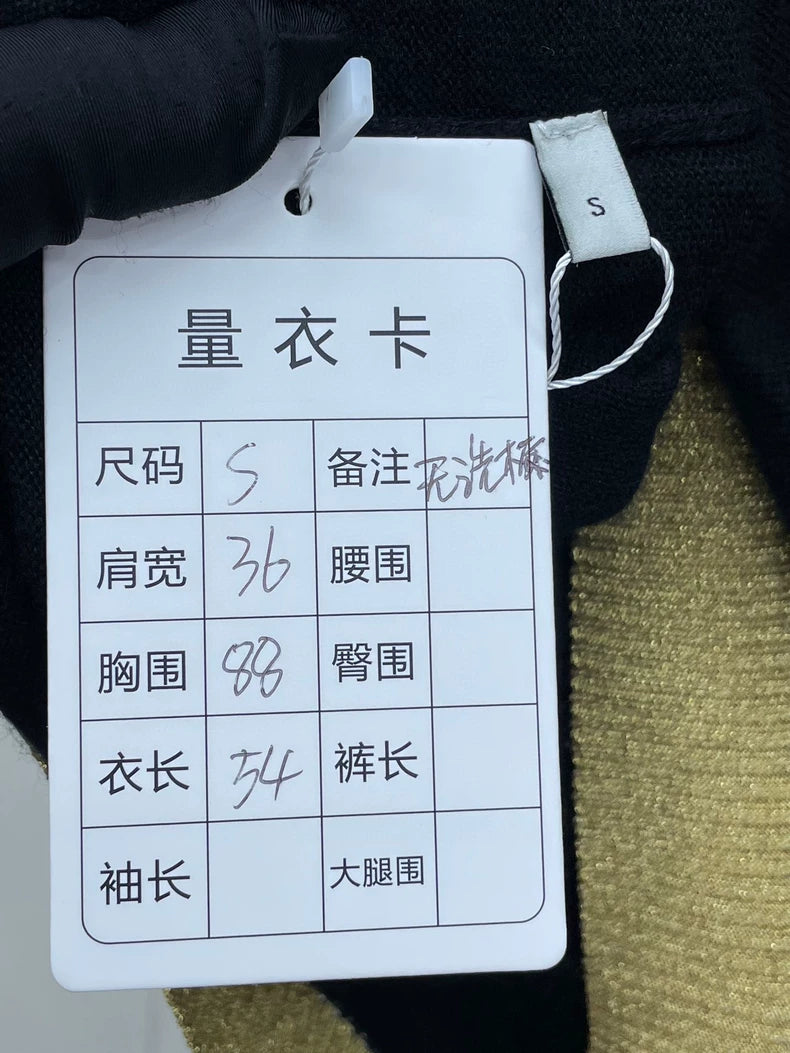 S
量衣卡
尺码 S 备注 无洗标
肩宽 36 腰围
胸围 88 臀围
衣长 54 裤长
袖长 大腿围